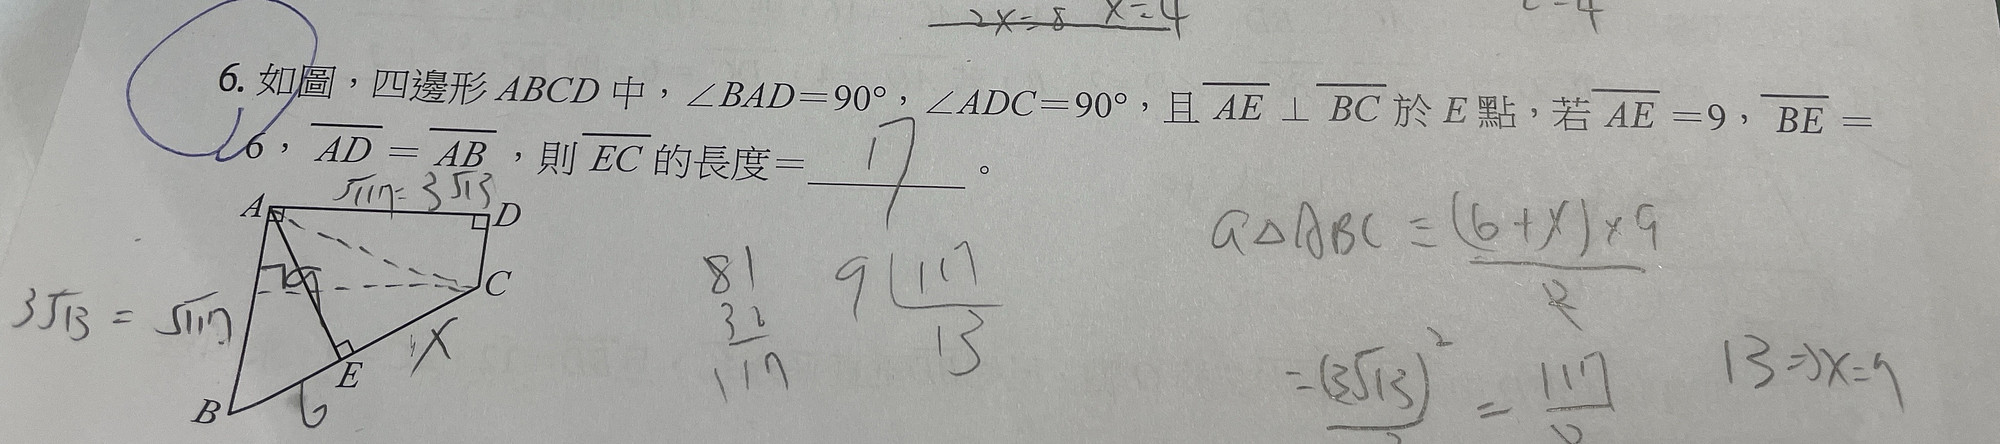 2x=8 x=4
=4
6. 如圖，四邊形 ABCD 中，∠BAD=90°，∠ADC=90°，且 AE ⊥ BC 於 E 點，若 AE =9，BE =
6，AD = AB，則 EC 的長度= 17 。
√117=3√13
A D
C
3√13 = √117
9
x
E
B 6
81
36
117
9 117
13
a△ABC = (6+x)×9
2
=(3√13)² = 117
2 2
13⇒x=9